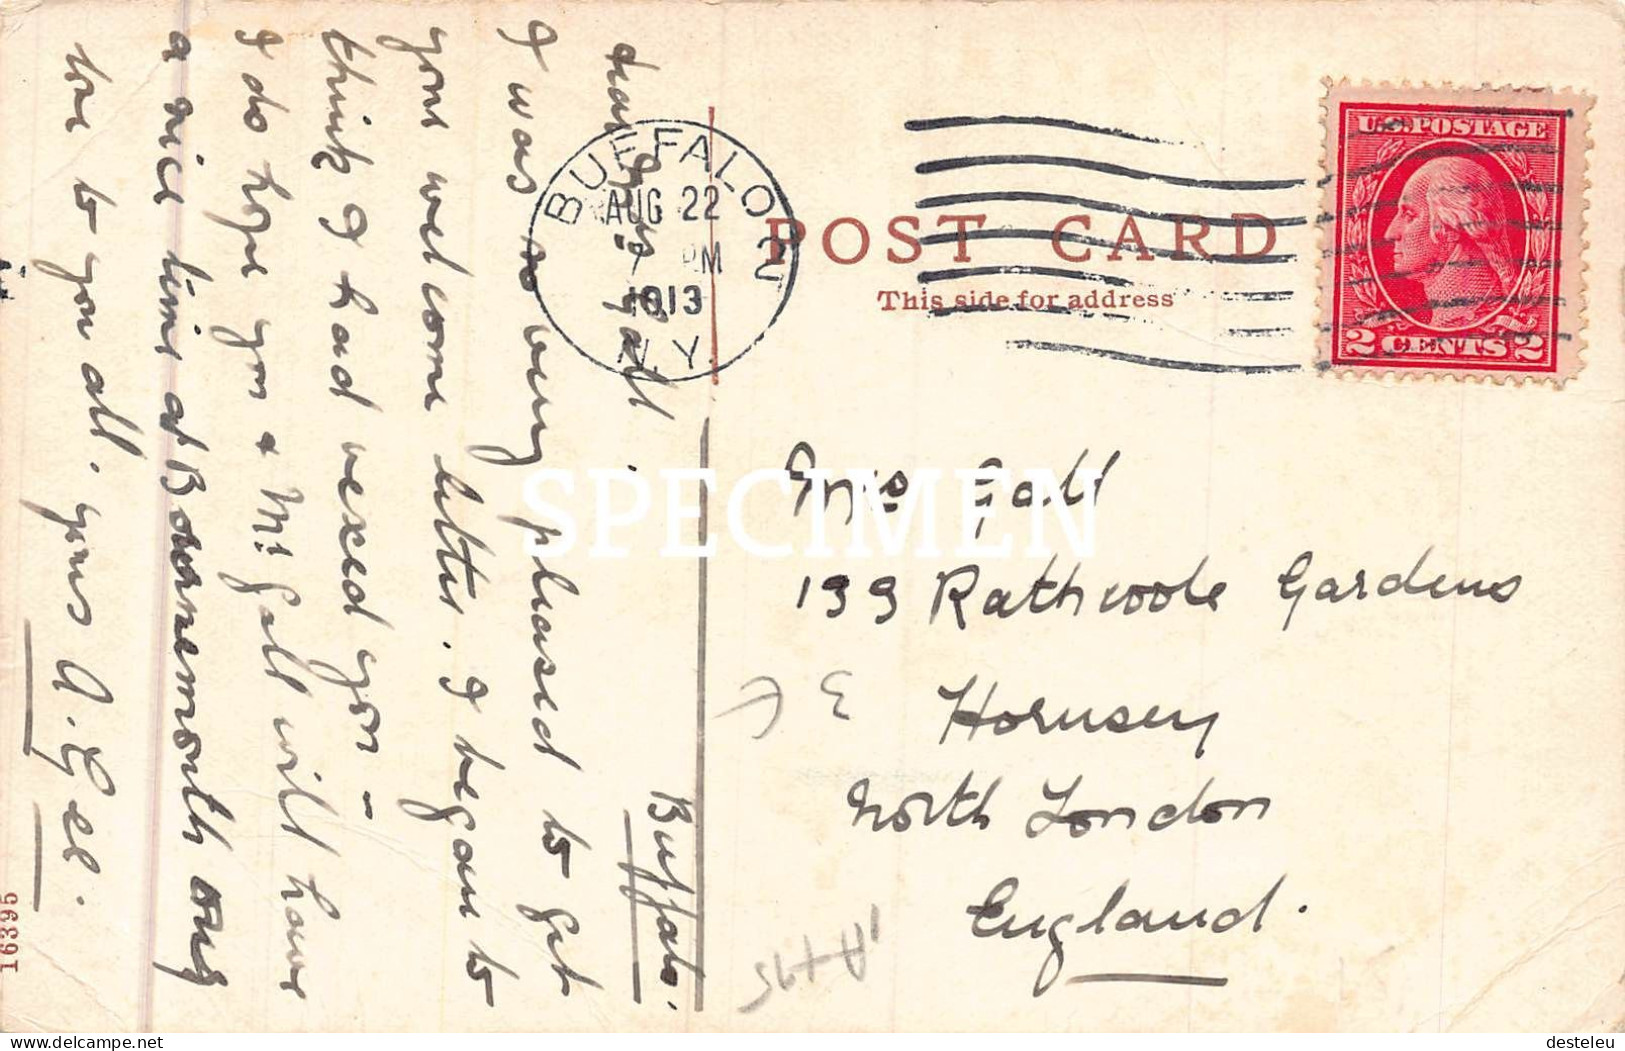 Buffalo.
Dear Mrs Gall.
I was so very pleased to get
your welcome letter. I began to
think I had vexed you -
I do hope you & Mr Gall will have
a nice time at Bournemouth only
love to you all. yours A. Gee.
16395
BUFFALO N.Y.
AUG 22
7 PM
1913
2
POST CARD
This side for address
U.S. POSTAGE
2 CENTS 2
SPECIMEN
Mrs Gall
199 Rathcoole Gardens
Hornsey
North London
England.
delcampe.net
desteleu